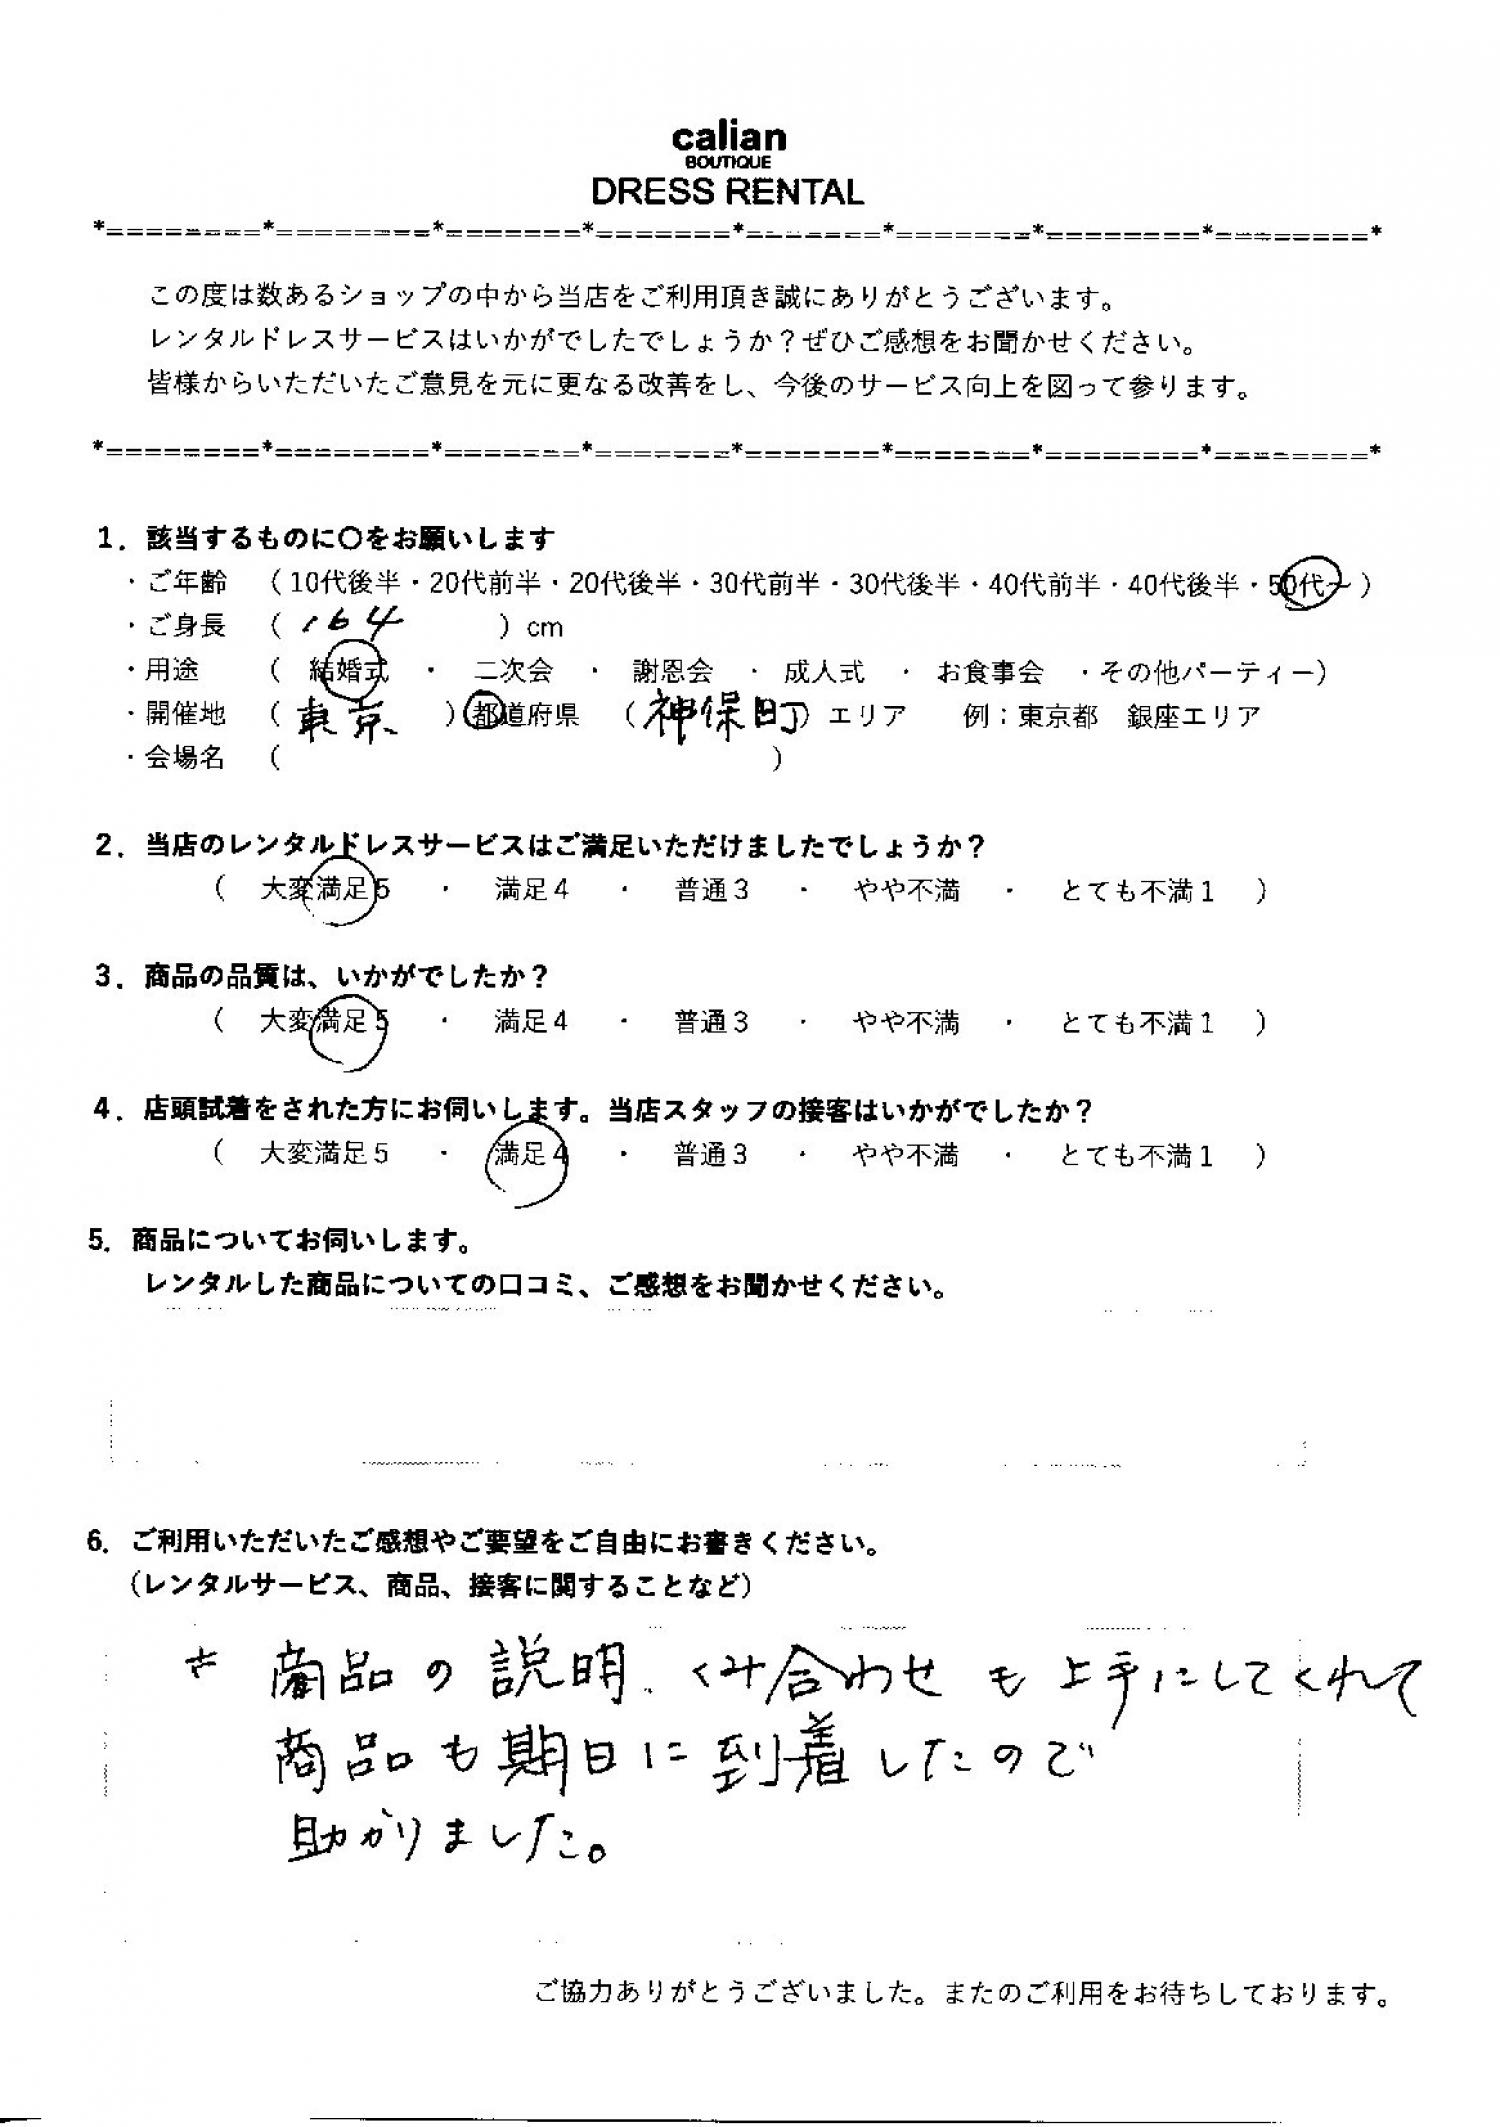 calian
BOUTIQUE
DRESS RENTAL
*========*========*=======*=======*=======*=======*========*========*
この度は数あるショップの中から当店をご利用頂き誠にありがとうございます。
レンタルドレスサービスはいかがでしたでしょうか？ぜひご感想をお聞かせください。
皆様からいただいたご意見を元に更なる改善をし、今後のサービス向上を図って参ります。
*========*========*=======*=======*=======*=======*========*========*
1．該当するものに〇をお願いします
・ご年齢 （10代後半・20代前半・20代後半・30代前半・30代後半・40代前半・40代後半・50代～）
・ご身長 （ 164 ）cm
・用途 （ 結婚式 ・ 二次会 ・ 謝恩会 ・ 成人式 ・ お食事会 ・その他パーティー）
・開催地 （ 東京 ）都道府県 （ 神保町 ）エリア 例：東京都 銀座エリア
・会場名 （ ）
2．当店のレンタルドレスサービスはご満足いただけましたでしょうか？
（ 大変満足5 ・ 満足4 ・ 普通3 ・ やや不満 ・ とても不満1 ）
3．商品の品質は、いかがでしたか？
（ 大変満足5 ・ 満足4 ・ 普通3 ・ やや不満 ・ とても不満1 ）
4．店頭試着をされた方にお伺いします。当店スタッフの接客はいかがでしたか？
（ 大変満足5 ・ 満足4 ・ 普通3 ・ やや不満 ・ とても不満1 ）
5．商品についてお伺いします。
レンタルした商品についての口コミ、ご感想をお聞かせください。
6．ご利用いただいたご感想やご要望をご自由にお書きください。
（レンタルサービス、商品、接客に関することなど）
商品の説明、くみ合わせも上手にしてくれて
商品も期日に到着したので
助かりました。
ご協力ありがとうございました。またのご利用をお待ちしております。